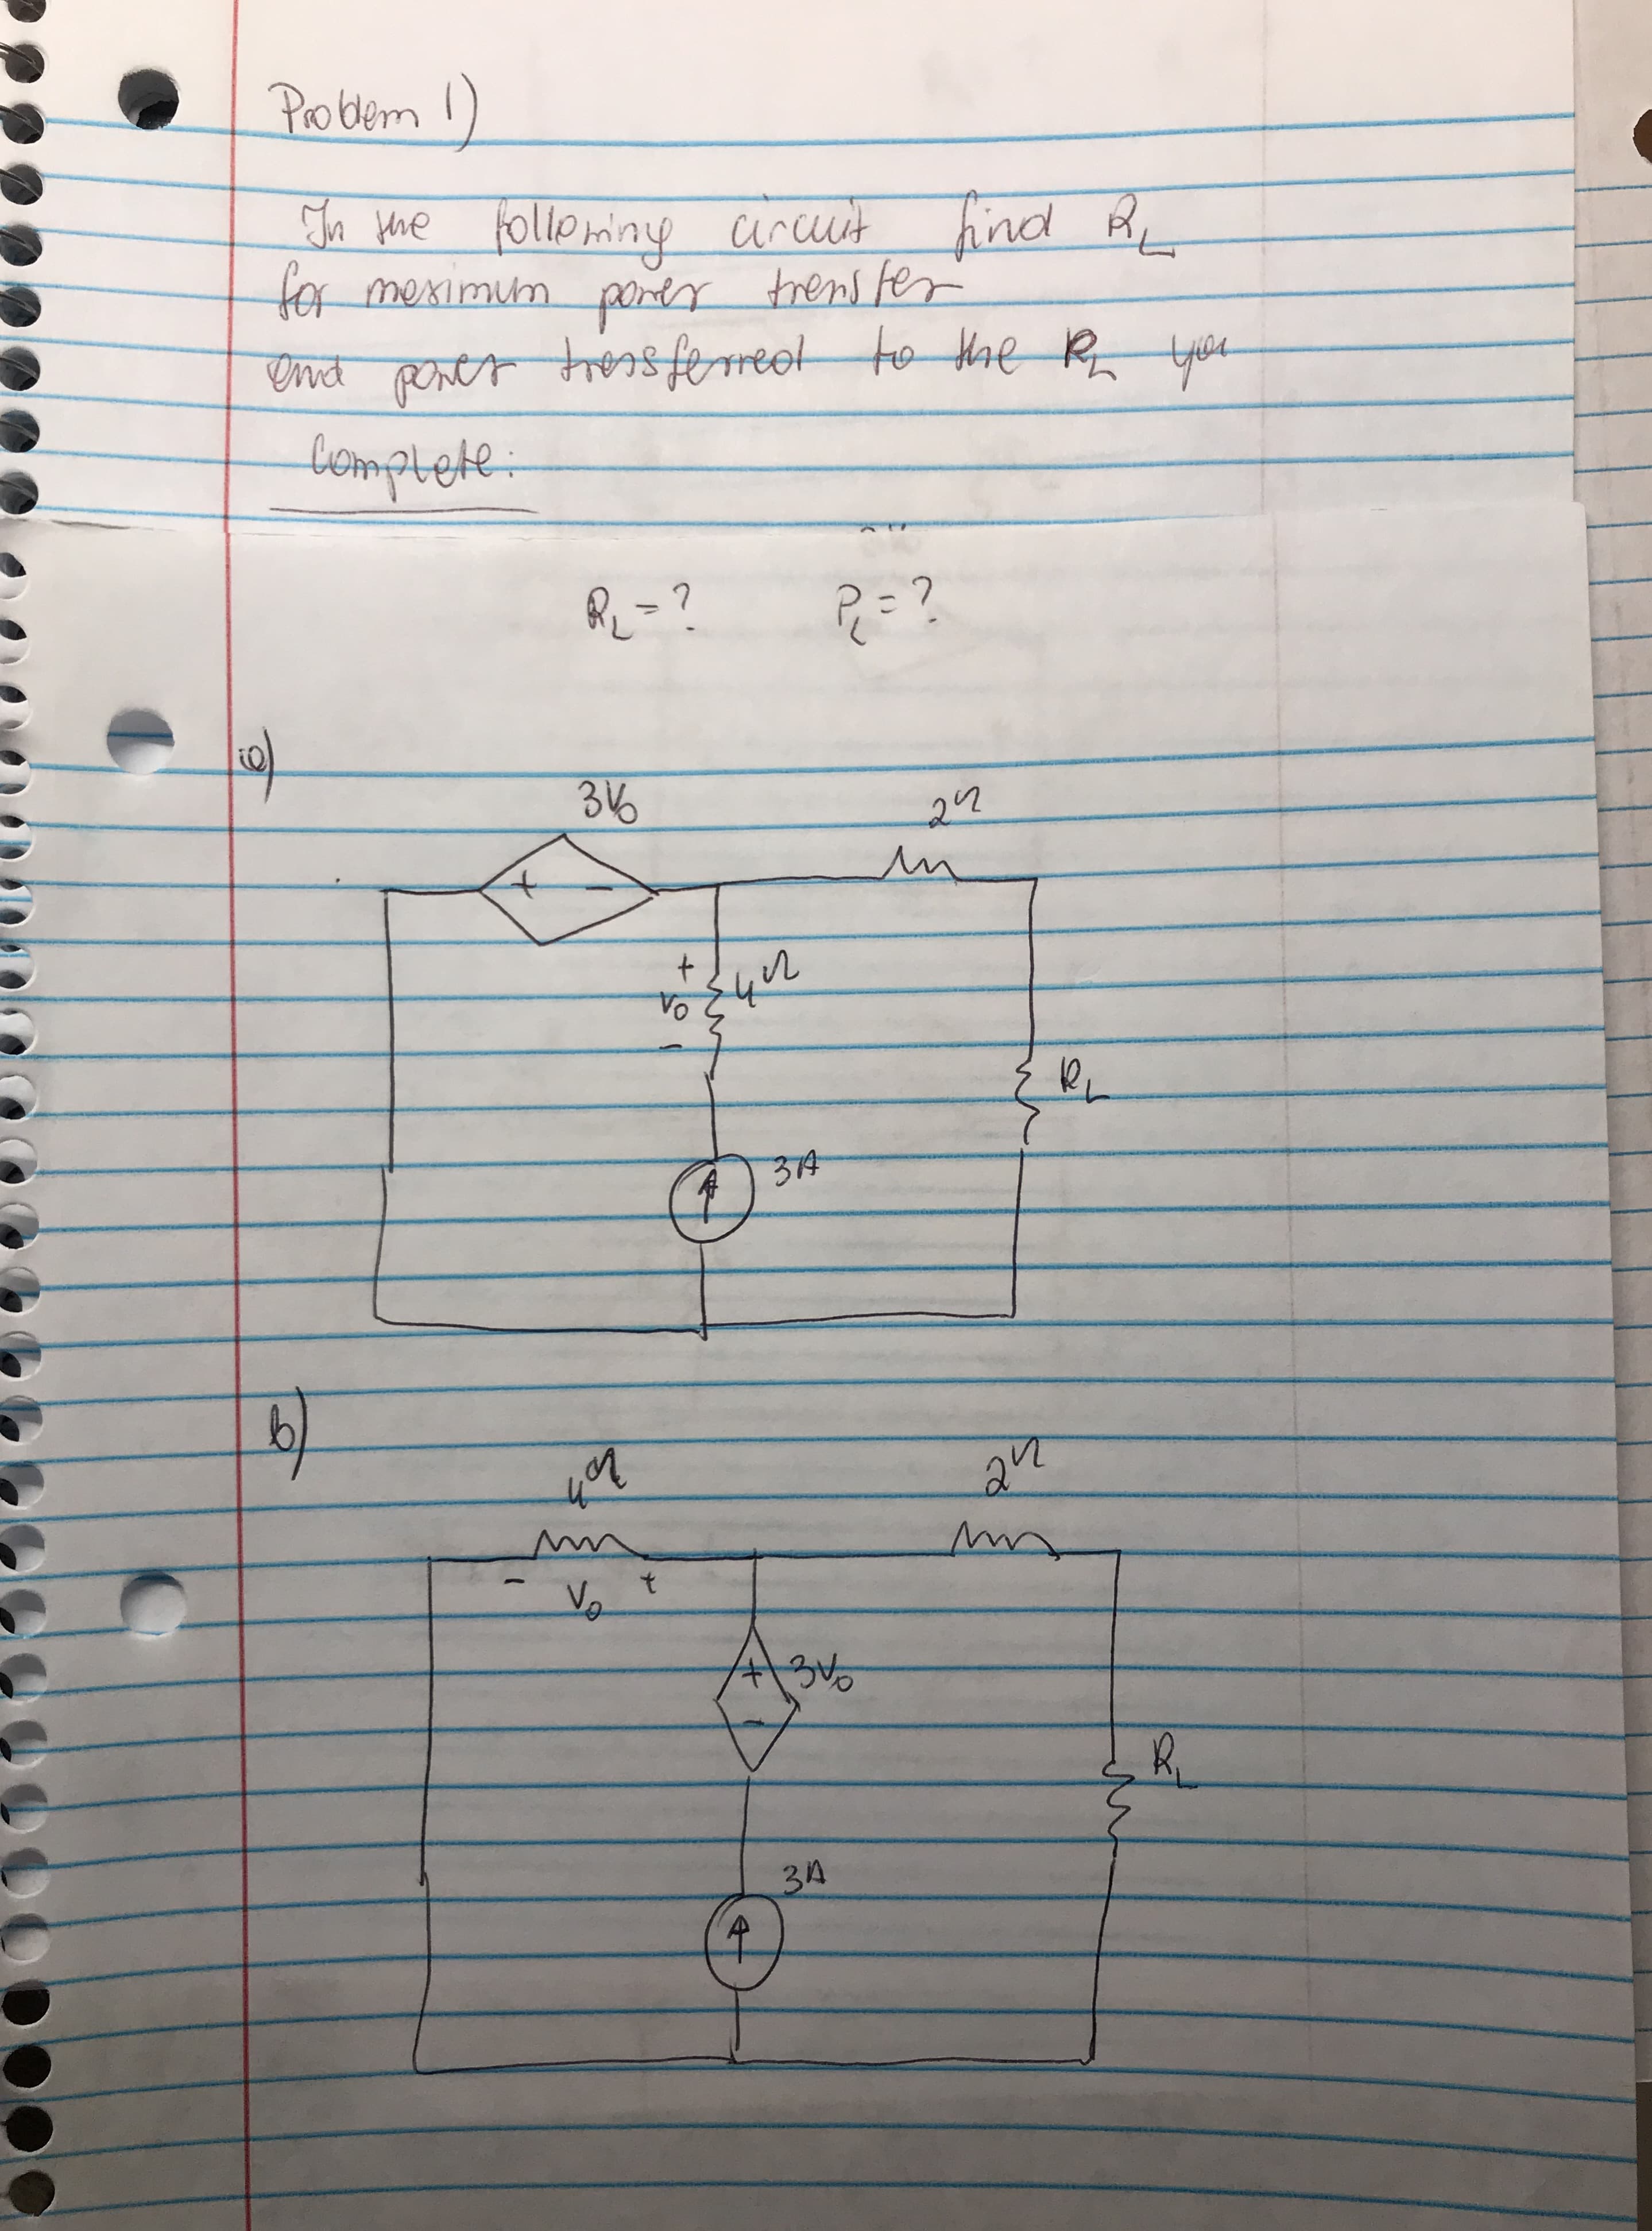 Problem 1)
In the following circuit find RL
for meximum power trensfer
end power trensferred to the RL you
Complete:
RL = ? PL = ?
a)
3V0 2Ω
+ -
+
V0 4Ω
-
RL
3A
b)
4Ω 2Ω
- V0 +
+ 3V0
-
RL
3A